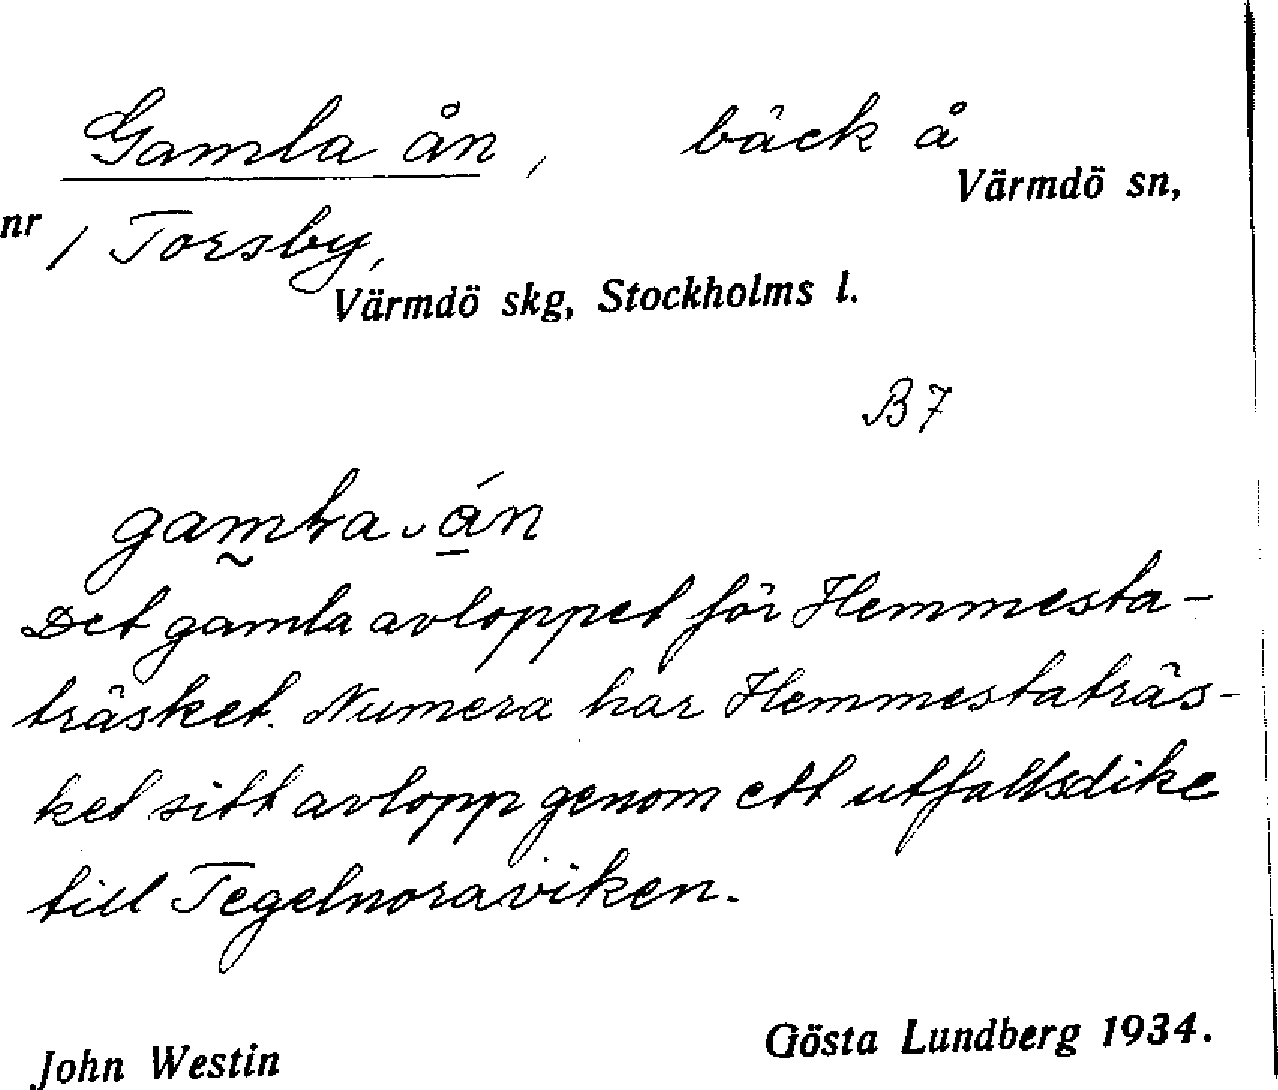 Gamla ån, bäck å
Värmdö sn,
nr 1 Torsby,
Värmdö skg, Stockholms l.
B7
gamla ån
Det gamla avloppet för Hemmesta-
träsket. Numera har Hemmestaträs-
ket sitt avlopp genom ett utfallsdike
till Tegelnoraviken.
John Westin Gösta Lundberg 1934.